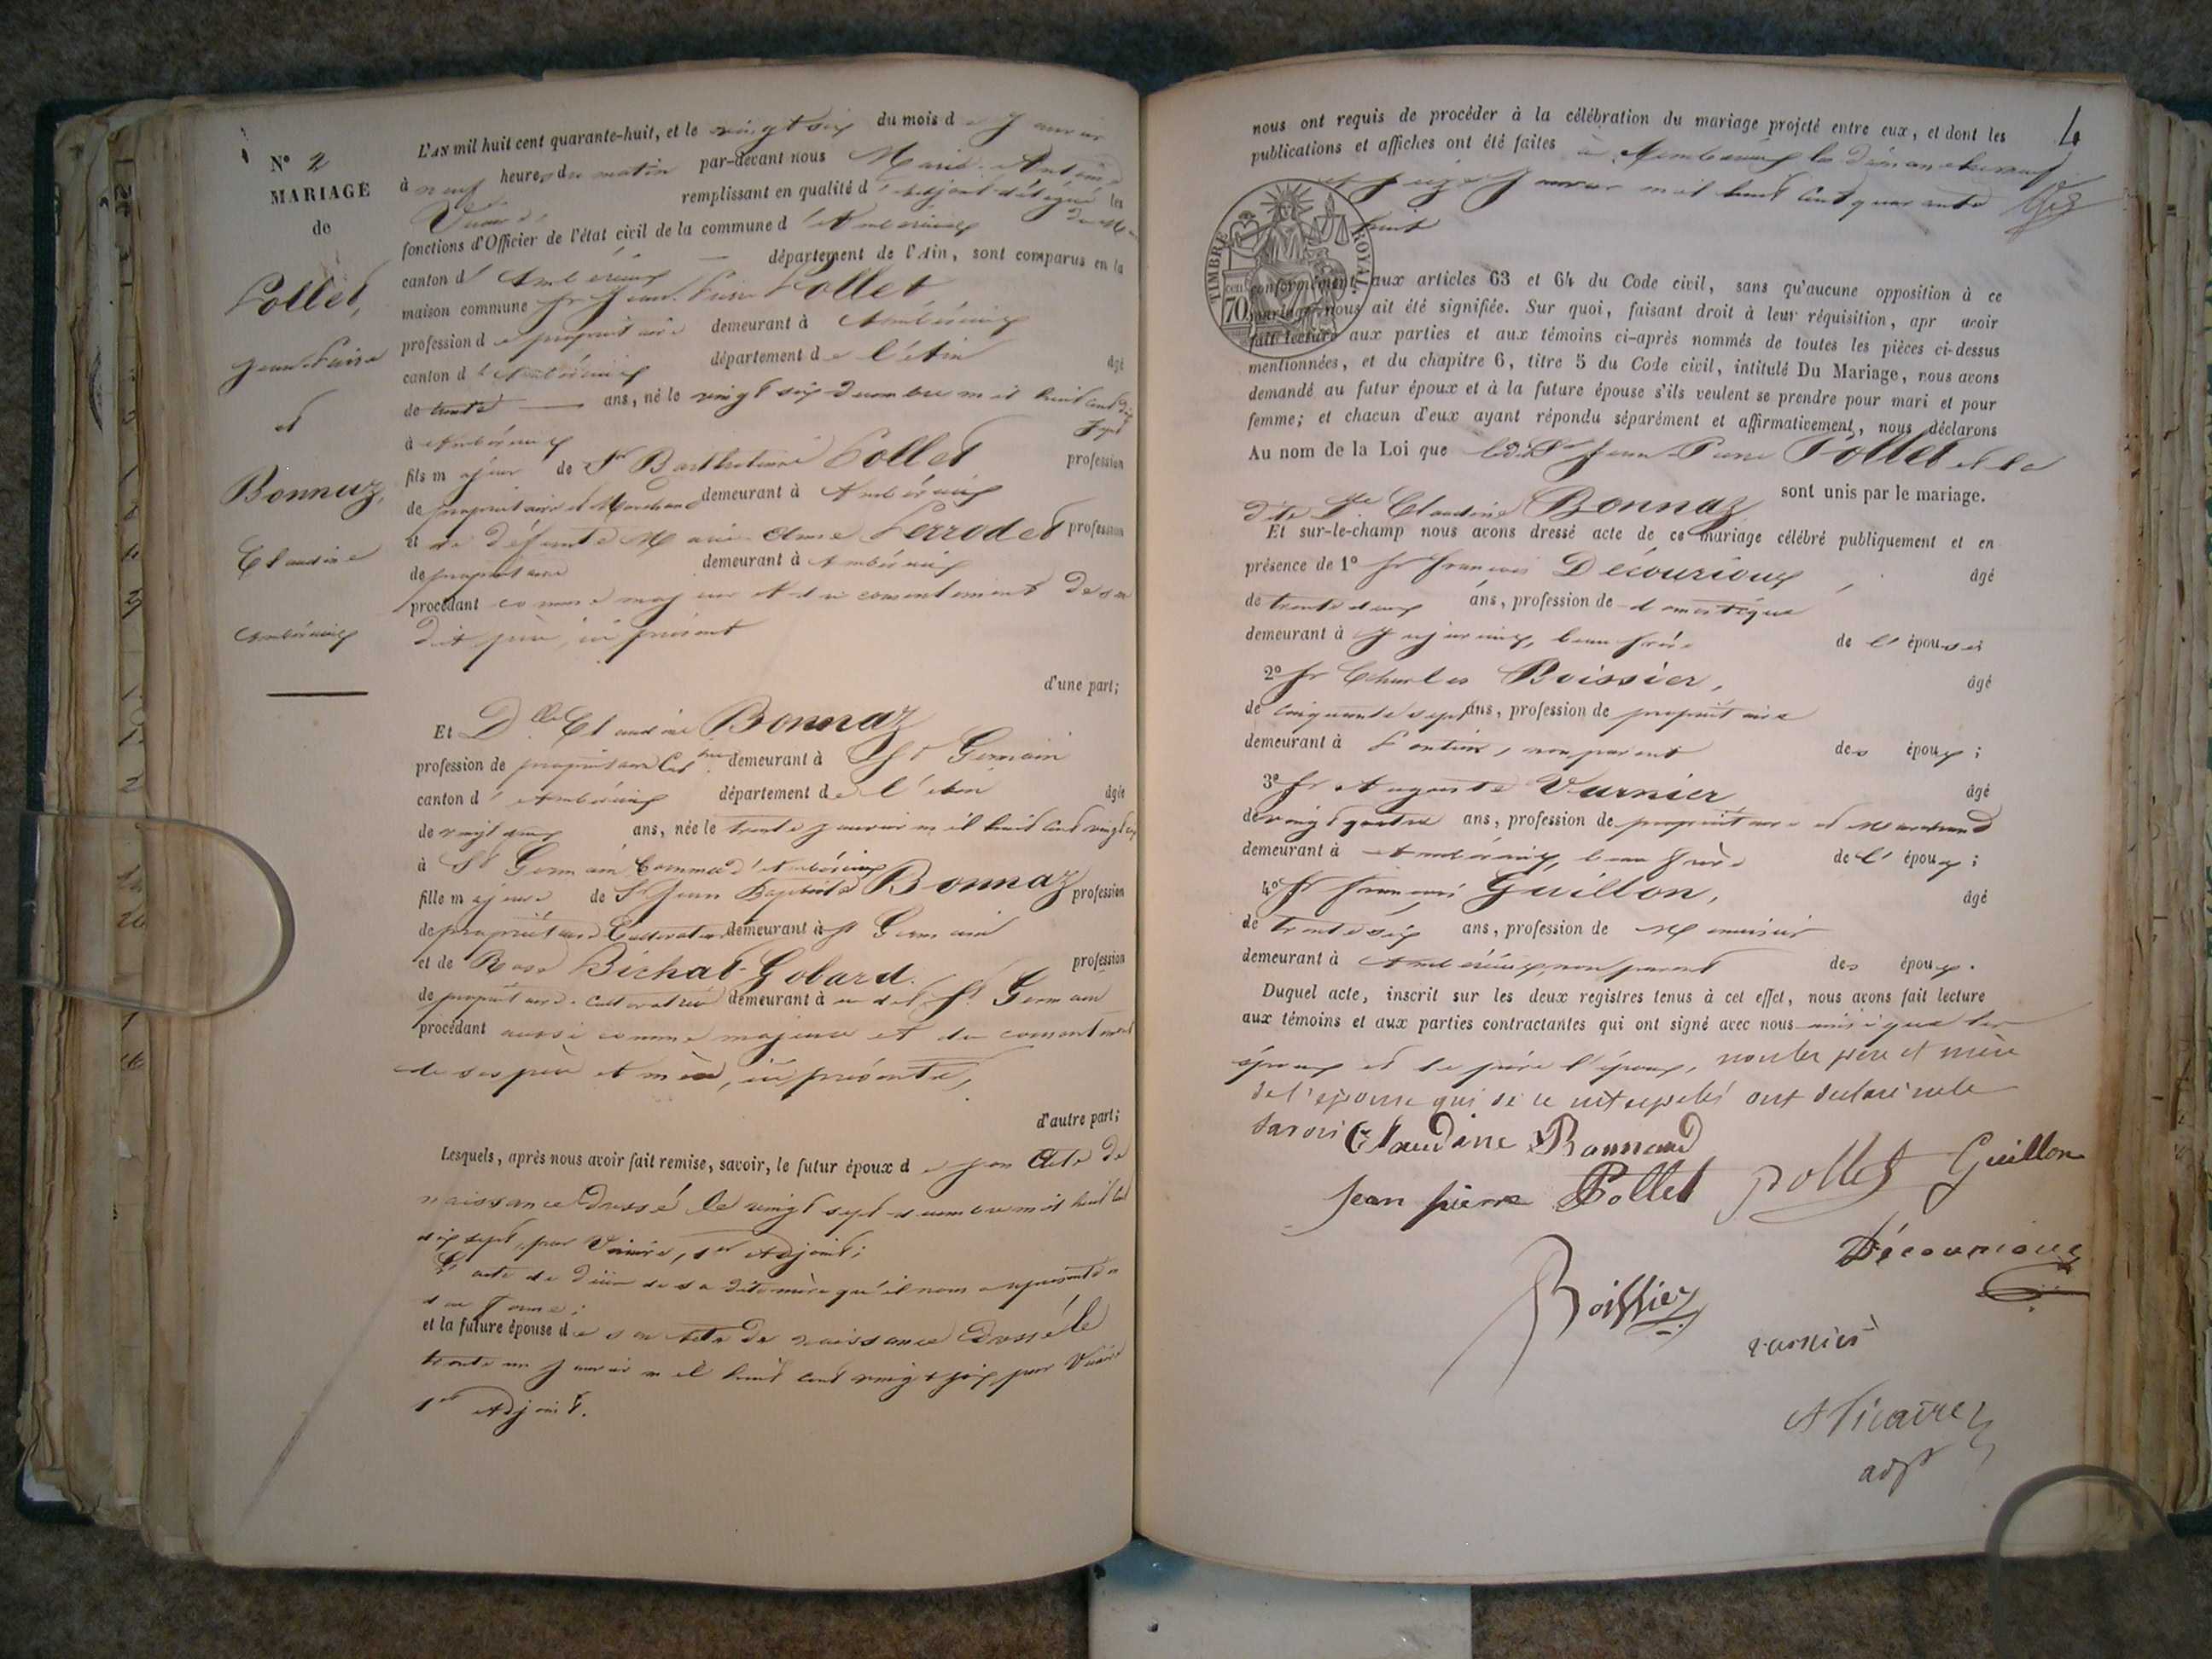 N° 2
MARIAGE
de
Pollet,
Jean-Pierre
et
Bonnaz,
Claudine
Ambérieux
L'AN mil huit cent quarante-huit, et le vingt six du mois de Janvier
à neuf heures du matin par-devant nous Marie-Antoine
remplissant en qualité d'adjoint délégué les
fonctions d'Officier de l'état civil de la commune d'Ambérieux
canton d'Ambérieux département de l'Ain, sont comparus en la
maison commune Sr Jean-Pierre Pollet
profession de propriétaire demeurant à Ambérieux
canton d'Ambérieux département de l'Ain âgé
de trente ans, né le vingt six décembre mil huit cent dix
sept
à Ambérieux
fils majeur de Sr Barthélemi Pollet profession
de propriétaire et Marchand demeurant à Ambérieux
et de défunte Marie Perrodet profession
de propriétaire demeurant à Ambérieux
procédant comme majeur et du consentement de son
dit père, ici présent
d'une part;
Et Dlle Claudine Bonnaz
profession de propriétaire demeurant à St Germain
canton d'Ambérieux département de l'Ain âgée
de vingt deux ans, née le trente janvier mil huit cent vingt six
à St Germain Commune d'Ambérieux
fille majeure de Sr Jean Baptiste Bonnaz profession
de propriétaire Cultivateur demeurant à St Germain
et de Rose Bichat-Gobard. profession
de propriétaire-cultivatrice demeurant à au dit St Germain
procédant aussi comme majeure et du consentement
de ses père et mère, ici présents,
d'autre part;
Lesquels, après nous avoir fait remise, savoir, le futur époux de son Acte de
naissance dressé le vingt sept décembre mil huit cent
dix sept, par 1er Adjoint;
L'acte de décès de sa dite mère qu'il nous a représenté en
due forme;
et la future épouse de son acte de naissance dressé le
trente un janvier mil huit cent vingt six par
1er Adjoint.
4
nous ont requis de procéder à la célébration du mariage projeté entre eux, et dont les
publications et affiches ont été faites à Ambérieux les dimanches neuf
et seize Janvier mil huit cent quarante
huit
TIMBRE ROYAL
70 cent
conformément aux articles 63 et 64 du Code civil, sans qu'aucune opposition à ce
mariage nous ait été signifiée. Sur quoi, faisant droit à leur réquisition, apr avoir
fait lecture aux parties et aux témoins ci-après nommés de toutes les pièces ci-dessus
mentionnées, et du chapitre 6, titre 5 du Code civil, intitulé Du Mariage, nous avons
demandé au futur époux et à la future épouse s'ils veulent se prendre pour mari et pour
femme; et chacun d'eux ayant répondu séparément et affirmativement, nous déclarons
Au nom de la Loi que ledit Sr Jean-Pierre Pollet et la
dite Dlle Claudine Bonnaz sont unis par le mariage.
Et sur-le-champ nous avons dressé acte de ce mariage célébré publiquement et en
présence de 1° Sr François Décourioux, âgé
de trente deux ans, profession de domestique
demeurant à Jujurieux, beau frère de l'épouse
2° Sr Charles Boissier, âgé
de cinquante sept ans, profession de propriétaire
demeurant à non parent des époux;
3° Sr Auguste Varnier âgé
de vingt quatre ans, profession de propriétaire et marchand
demeurant à Ambérieux, beau frère de l'époux;
4° Sr François Guillon, âgé
de trente six ans, profession de Menuisier
demeurant à Ambérieux non parent des époux.
Duquel acte, inscrit sur les deux registres tenus à cet effet, nous avons fait lecture
aux témoins et aux parties contractantes qui ont signé avec nous ainsi que les
époux et le père l'époux, non les père et mère
de l'épouse qui de ce interpelés ont déclaré ne le
savoir
Claudine Bonnand
Jean pierre Pollet pollet Guillon
Décourioux
Boissier
varnier
A Vicaire
adjt